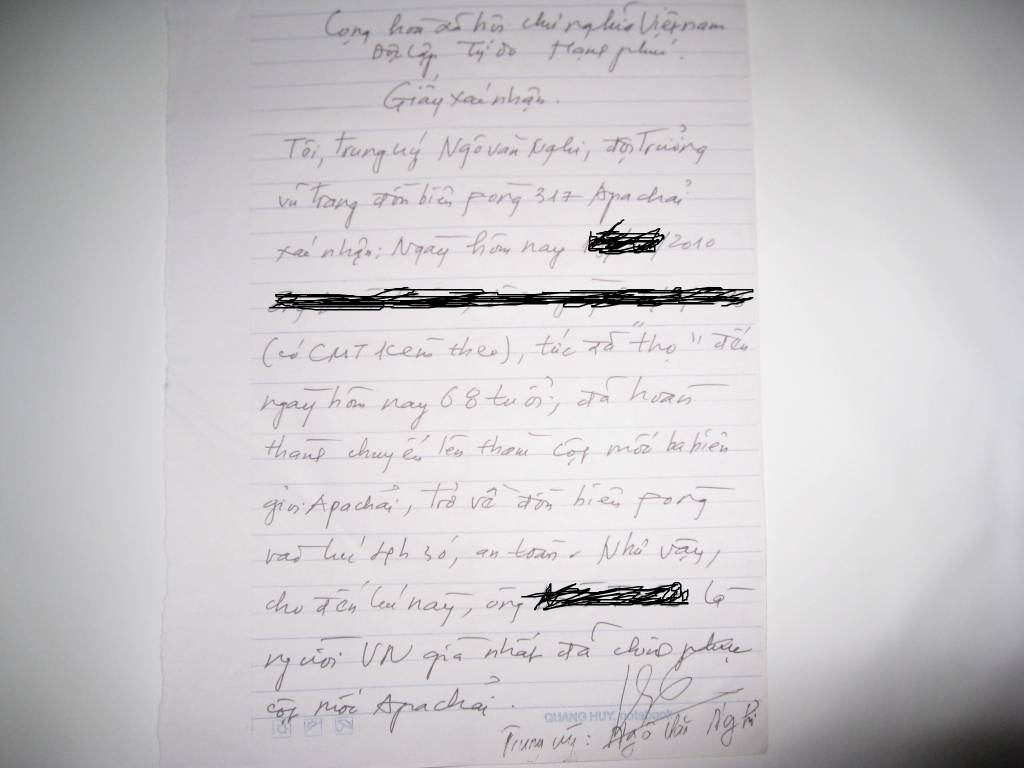 Cộng hoà xã hội chủ nghĩa Việt nam
Độc lập Tự do Hạnh phúc.
Giấy xác nhận.
Tôi, trung úy Ngô văn Nghi, đội trưởng
vũ trang đồn biên fòng 317 Apachải
xác nhận: Ngày hôm nay /2010
(có CMT kèm theo), tức đã "thọ" đến
ngày hôm nay 68 tuổi, đã hoàn
thành chuyến lên thăm cột mốc ba biên
giới Apachải, trở về đồn biên fòng
vào lúc 30, an toàn. Như vậy,
cho đến lúc này, ông là
người VN già nhất đã chinh phục
cột mốc Apachải.
QUANG HUY
Trung úy: Ngô Văn